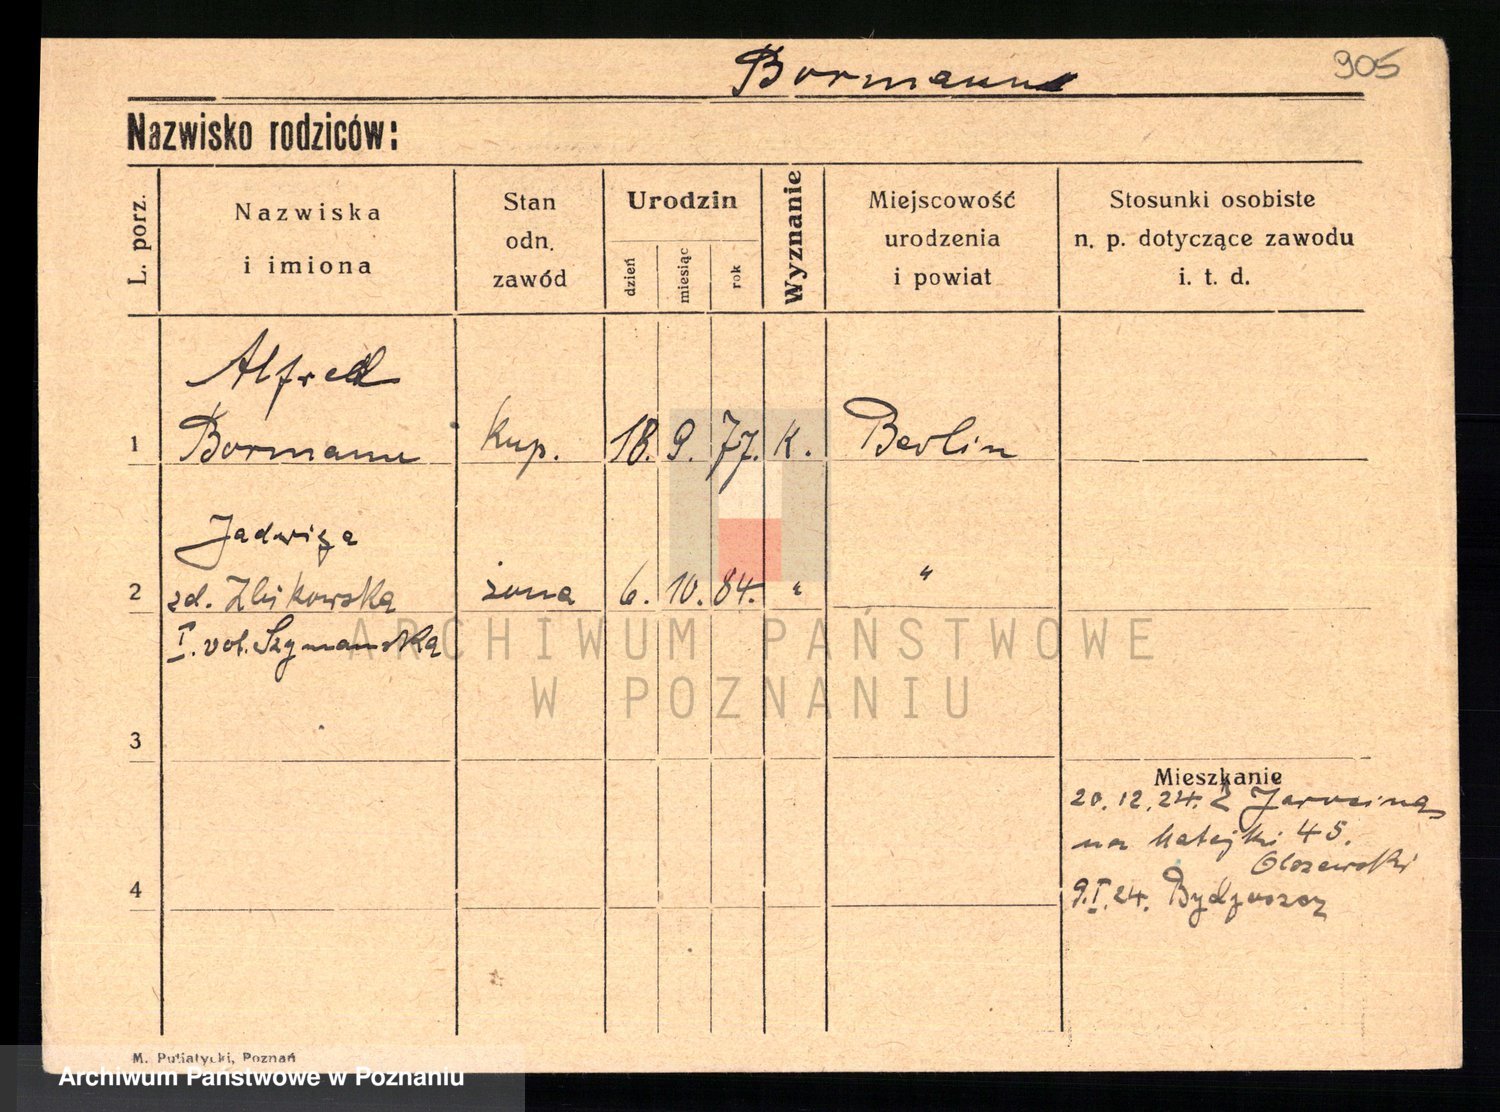 905
Bormann
Nazwisko rodziców:
L. porz.
Nazwiska
i imiona
Stan
odn.
zawód
Urodzin
dzień
miesiąc
rok
Wyznanie
Miejscowość
urodzenia
i powiat
Stosunki osobiste
n. p. dotyczące zawodu
i. t. d.
Alfred
1 Bormann Kup. 18. 9. 77. K. Berlin
Jadwiga
2 zd. Zbikowska żona 6. 10. 84. " "
I. vot. Szymanska
ARCHIWUM PAŃSTWOWE
W POZNANIU
3
Mieszkanie
20.12.24. Z Jarocina
na Matejki 45.
Olszewski
4
9.I.24. Bydgoszcz
M. Putiatycki, Poznań
Archiwum Państwowe w Poznaniu